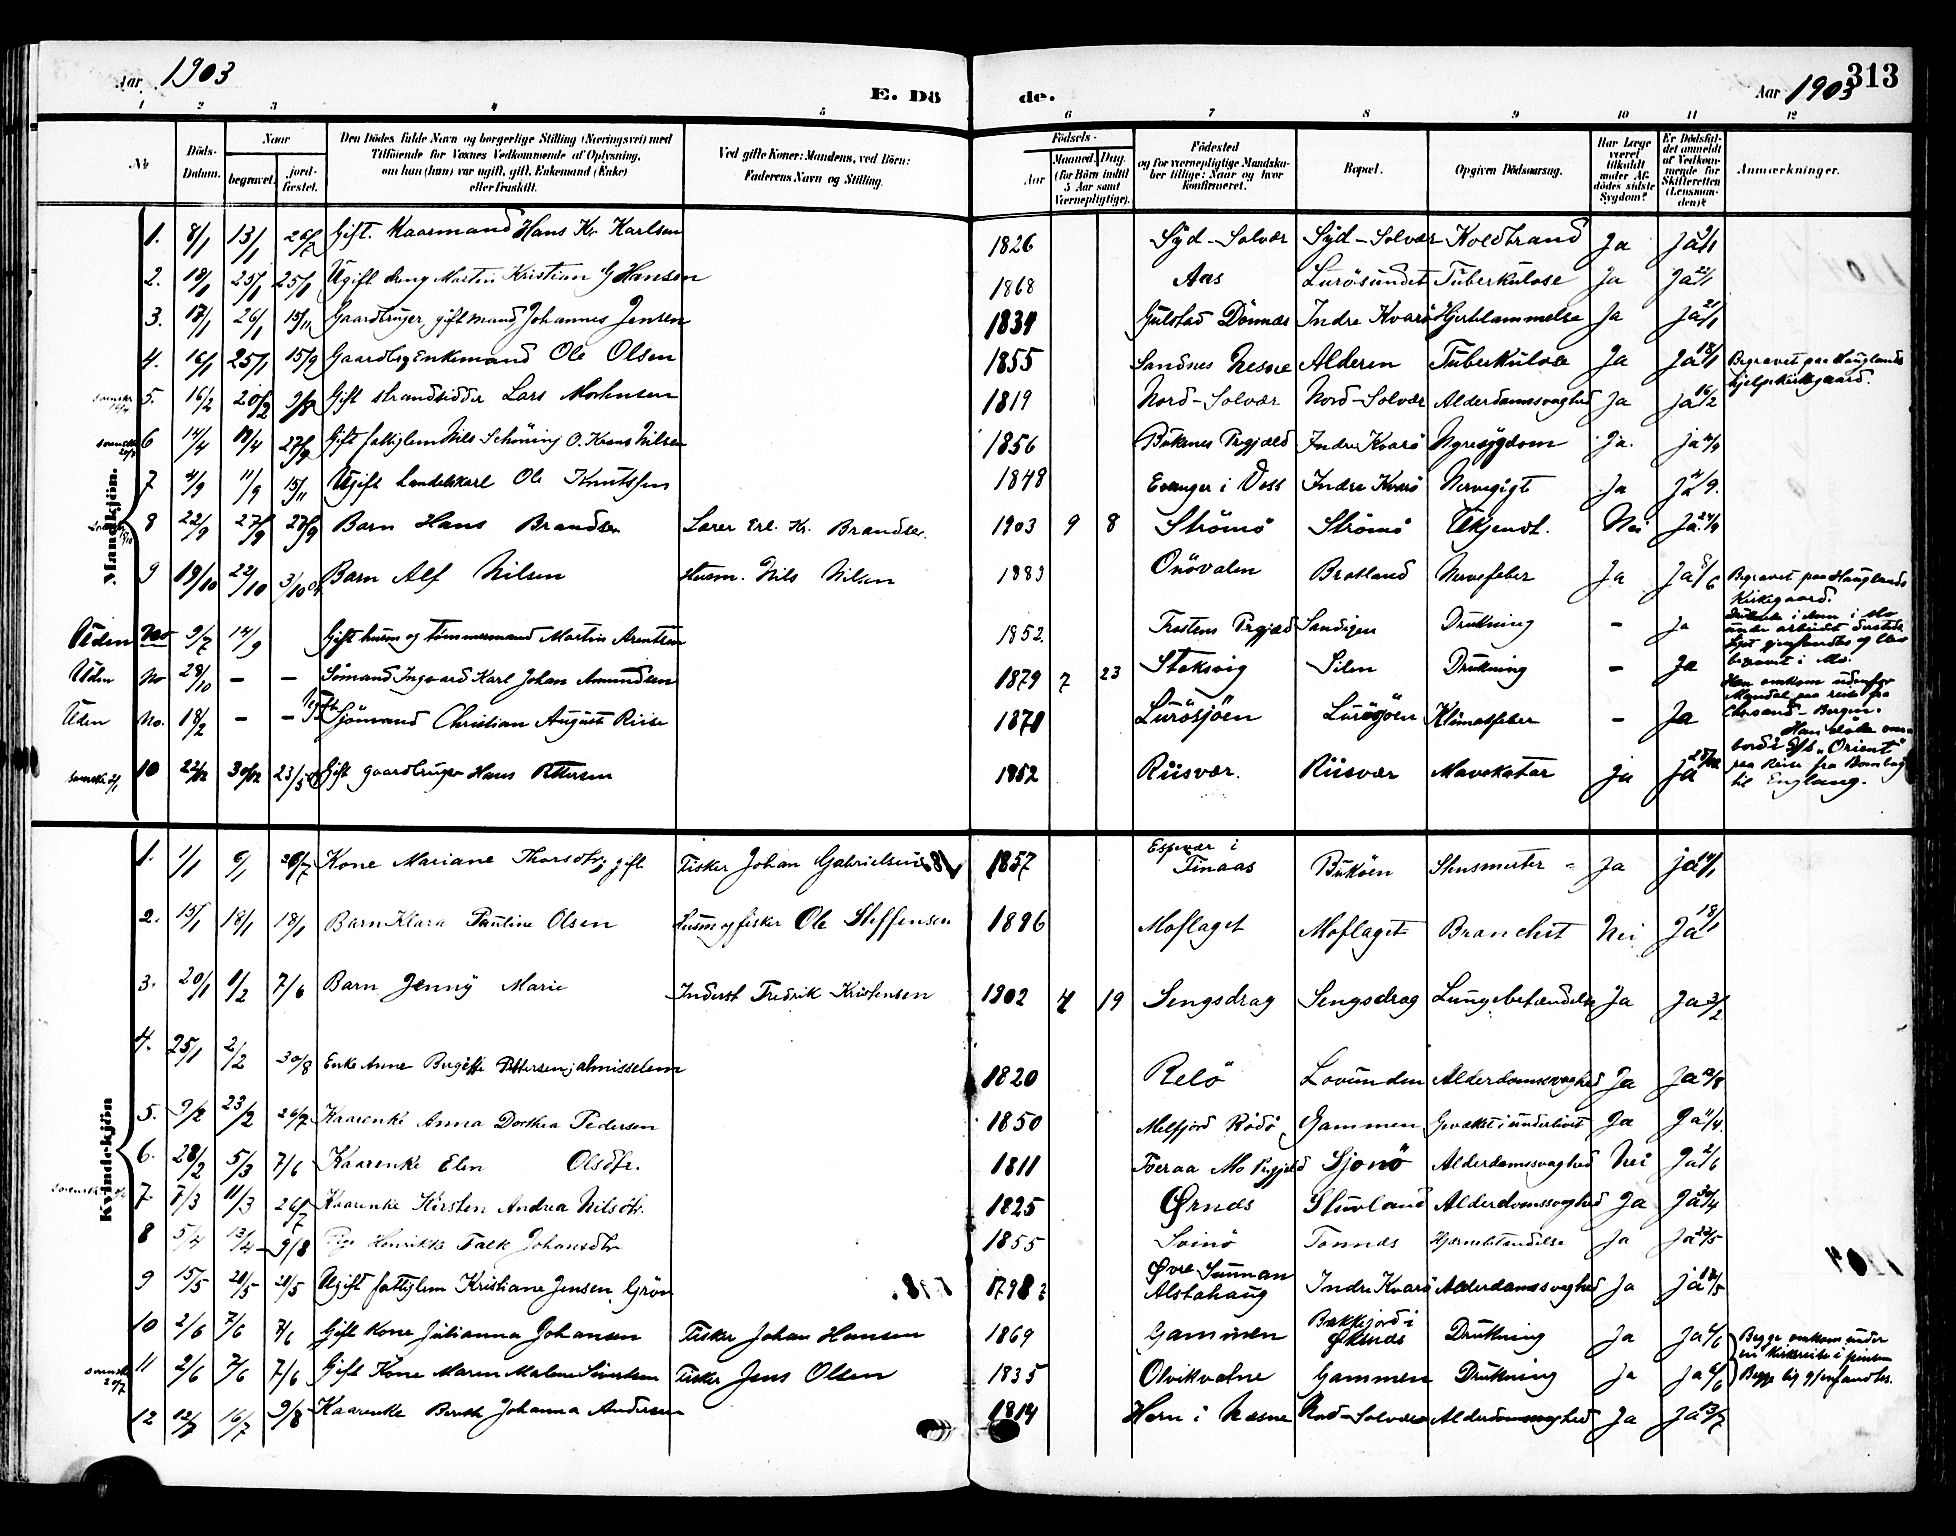 Aar 1903
E. Döde.
Aar 1903
313
1 2 3 4 5 6 7 8 9 10 11 12
No
Döds-Datum.
Naar
begravet.
jordfæstet.
Den Dödes fulde Navn og borgerlige Stilling (Næringsvei) med
Tilföiende for Voxnes Vedkommende af Oplysning,
om han (hun) var ugift, gift, Enkemand (Enke)
eller fraskilt.
Ved gifte Koner: Mandens, ved Börn:
Faderens Navn og Stilling.
Födsels-
Aar
Maaned. Dag.
(for Börn indtil
5 Aar samt
Værnepligtige).
Födested
og for værnepligtige Mandska-
ber tillige: Naar og hvor
konfirmeret.
Bopæl.
Opgiven Dödsaarsag.
Har Læge
været
tilkaldt
under Af-
dödes sidste
Sygdom?
Er Dödsfal-
det anmeldt
af Vedkom-
mende for
Skifteretten
(Lensman-
den)?
Anmærkninger.
Mandkjön.
1. 8/1 13/1 26/7 Gift. Kaarmand Hans Kr Karlsen 1826 Syd-Solvær Syd-Solvær Koldbrand Ja Ja
2. 18/1 25/1 25/1 Ugift dreng Martin Kristian G Hansen 1868 Aas Lurösundet Tuberkulose Ja Ja 22/1
3. 17/1 26/1 15/11 Gaardbruger gift mand Johannes Jensen 1839 Gulstad Dönnæs Indre Kvarö Hjertelammelse Ja Ja 21/1
4. 16/1 25/1 15/9 Gaardbrg Enkemand Ole Olsen 1855 Sandnes Nesne Alderen Tuberkulose Ja Ja 18/1 Begravet paa Hauglands
hjelpekirkegaard.
5. 16/2 20/2 9/8 Gift strandsidder Lars Mortensen 1819 Nord-Solvær Nord-Solvær Alderdomssvaghed Ja Ja 16/2
6 14/4 19/4 27/9 Gift fattiglem Nils Schöning O. Krans Nilsen 1856 Böknes Prgjæld Indre Kvarö Nyresygdom Ja. ja
7 4/9 11/9 15/11 Ugift handelskarl Ole Knutssen 1848 Evanger i Voss Indre Kvarö Nervegigt Ja Ja
8 22/9 27/9 27/9 Barn Hans Brandser Lærer Erl. Kr. Brandser. 1903 9 8 Strömö Strömö Ukjendt. Nei Ja 24/9
9 19/10 22/10 3/10 Barn Alf Nilsen Husm. Nils Nilsen 1883 Onövalen Bratland Nervefeber Ja Ja Begravet paa Hauglands
Kirkegaard.
Uden No 9/7 14/9 Gift husm og tömmermand Martin Arentsen 1852. Trostens Prgjæld Sandigen Drukning - Ja
begravet i Mo.
Uden No 28/10 - - Sömand Ingvard Karl Johan Amundsen 1879 7 23 Stoksvig Silen Drukning - Ja Han omkom udenfor
Mandal paa reise fra
Chrsand-Bergen.
Uden No. 18/2 - - Sjömand Christian August Riise 1871 Lurösjöen Lurösjöen Klimatfeber - Ja Han döde om-
bord i S/s "Orient"
paa Reise fra Bombay
til England.
10 22/12 30/12 Gift gaardbruger Hans Pettersen 1852 Riisvær. Riisvær Mavekatar Ja Ja
Kvindekjön
1. 1/1 6/1 26/7 Kone Mariane Thorsdtr, gift Fisker Johan Gabrielsen 1857 Espevær i
Finaas Buköen Stensmerter Ja ja
2. 15/1 18/1 18/1 Barn Klara Pauline Olsen Husm og fisker Ole Steffensen 1896 Moflaget Moflaget Bronchit Nei Ja 18/1
3. 20/1 1/2 7/6 Barn Jenny Marie Inderst Fredrik Kristensen 1902 4 19 Sengsdrag Sengsdrag Lungebetændelse Ja Ja 3/2
4. 25/1 2/2 30/8 Enke Anne Bergitte Pettersen, almisselem 1820 Relö Lovunden Alderdomssvaghed Ja Ja
5. 9/2 23/2 26/7 Kaarenke Anna Dorthea Pedersen 1850 Melfjord Rödö Gammen Gevækst i underlivet Ja Ja
6. 28/2 5/3 7/6 Kaarenke Elen Olsdtr. 1811 Toeraa Mo Prgjeld Sjonö Alderdomssvaghed Nei Ja
7. 7/3 11/3 26/7 Kaarenke Kirsten Andrea Nilsdtr. 1825 Ørnes Stuvland Alderdomssvaghed Ja Ja
8 5/4 13/4 9/8 Henrikke Falk Johansdtr 1855 Svinö Tonnes Hjernebetændelse Ja Ja
9 15/5 20/5 20/5 Ugift fattiglem Kristiane Jensen Grön 1798? Øvre Sunnan
Alstahaug Indre Kvarö Alderdomssvaghed Ja ja
10 2/6 7/6 7/6 Gift kone Julianna Johansen Fisker Johan Hansen 1869 Gammen Bakkfjord i
Øksnæs Drukning Ja Ja 6/6 Begge omkom under
en kirkereise i pinsen
11 2/6 7/6 7/6 Gift Kone Maren Malene Sivertsen Fisker Jens Olsen 1835 Olvikvatne Gammen Drukning Ja Ja 6/6 Begge lig gjenfandtes.
12 12/7 16/7 9/8 Kaarenke Berith Johanna Andersen 1814 Horn i Næsne Nord-Solvær Alderdomssvaghed Ja Ja 13/7